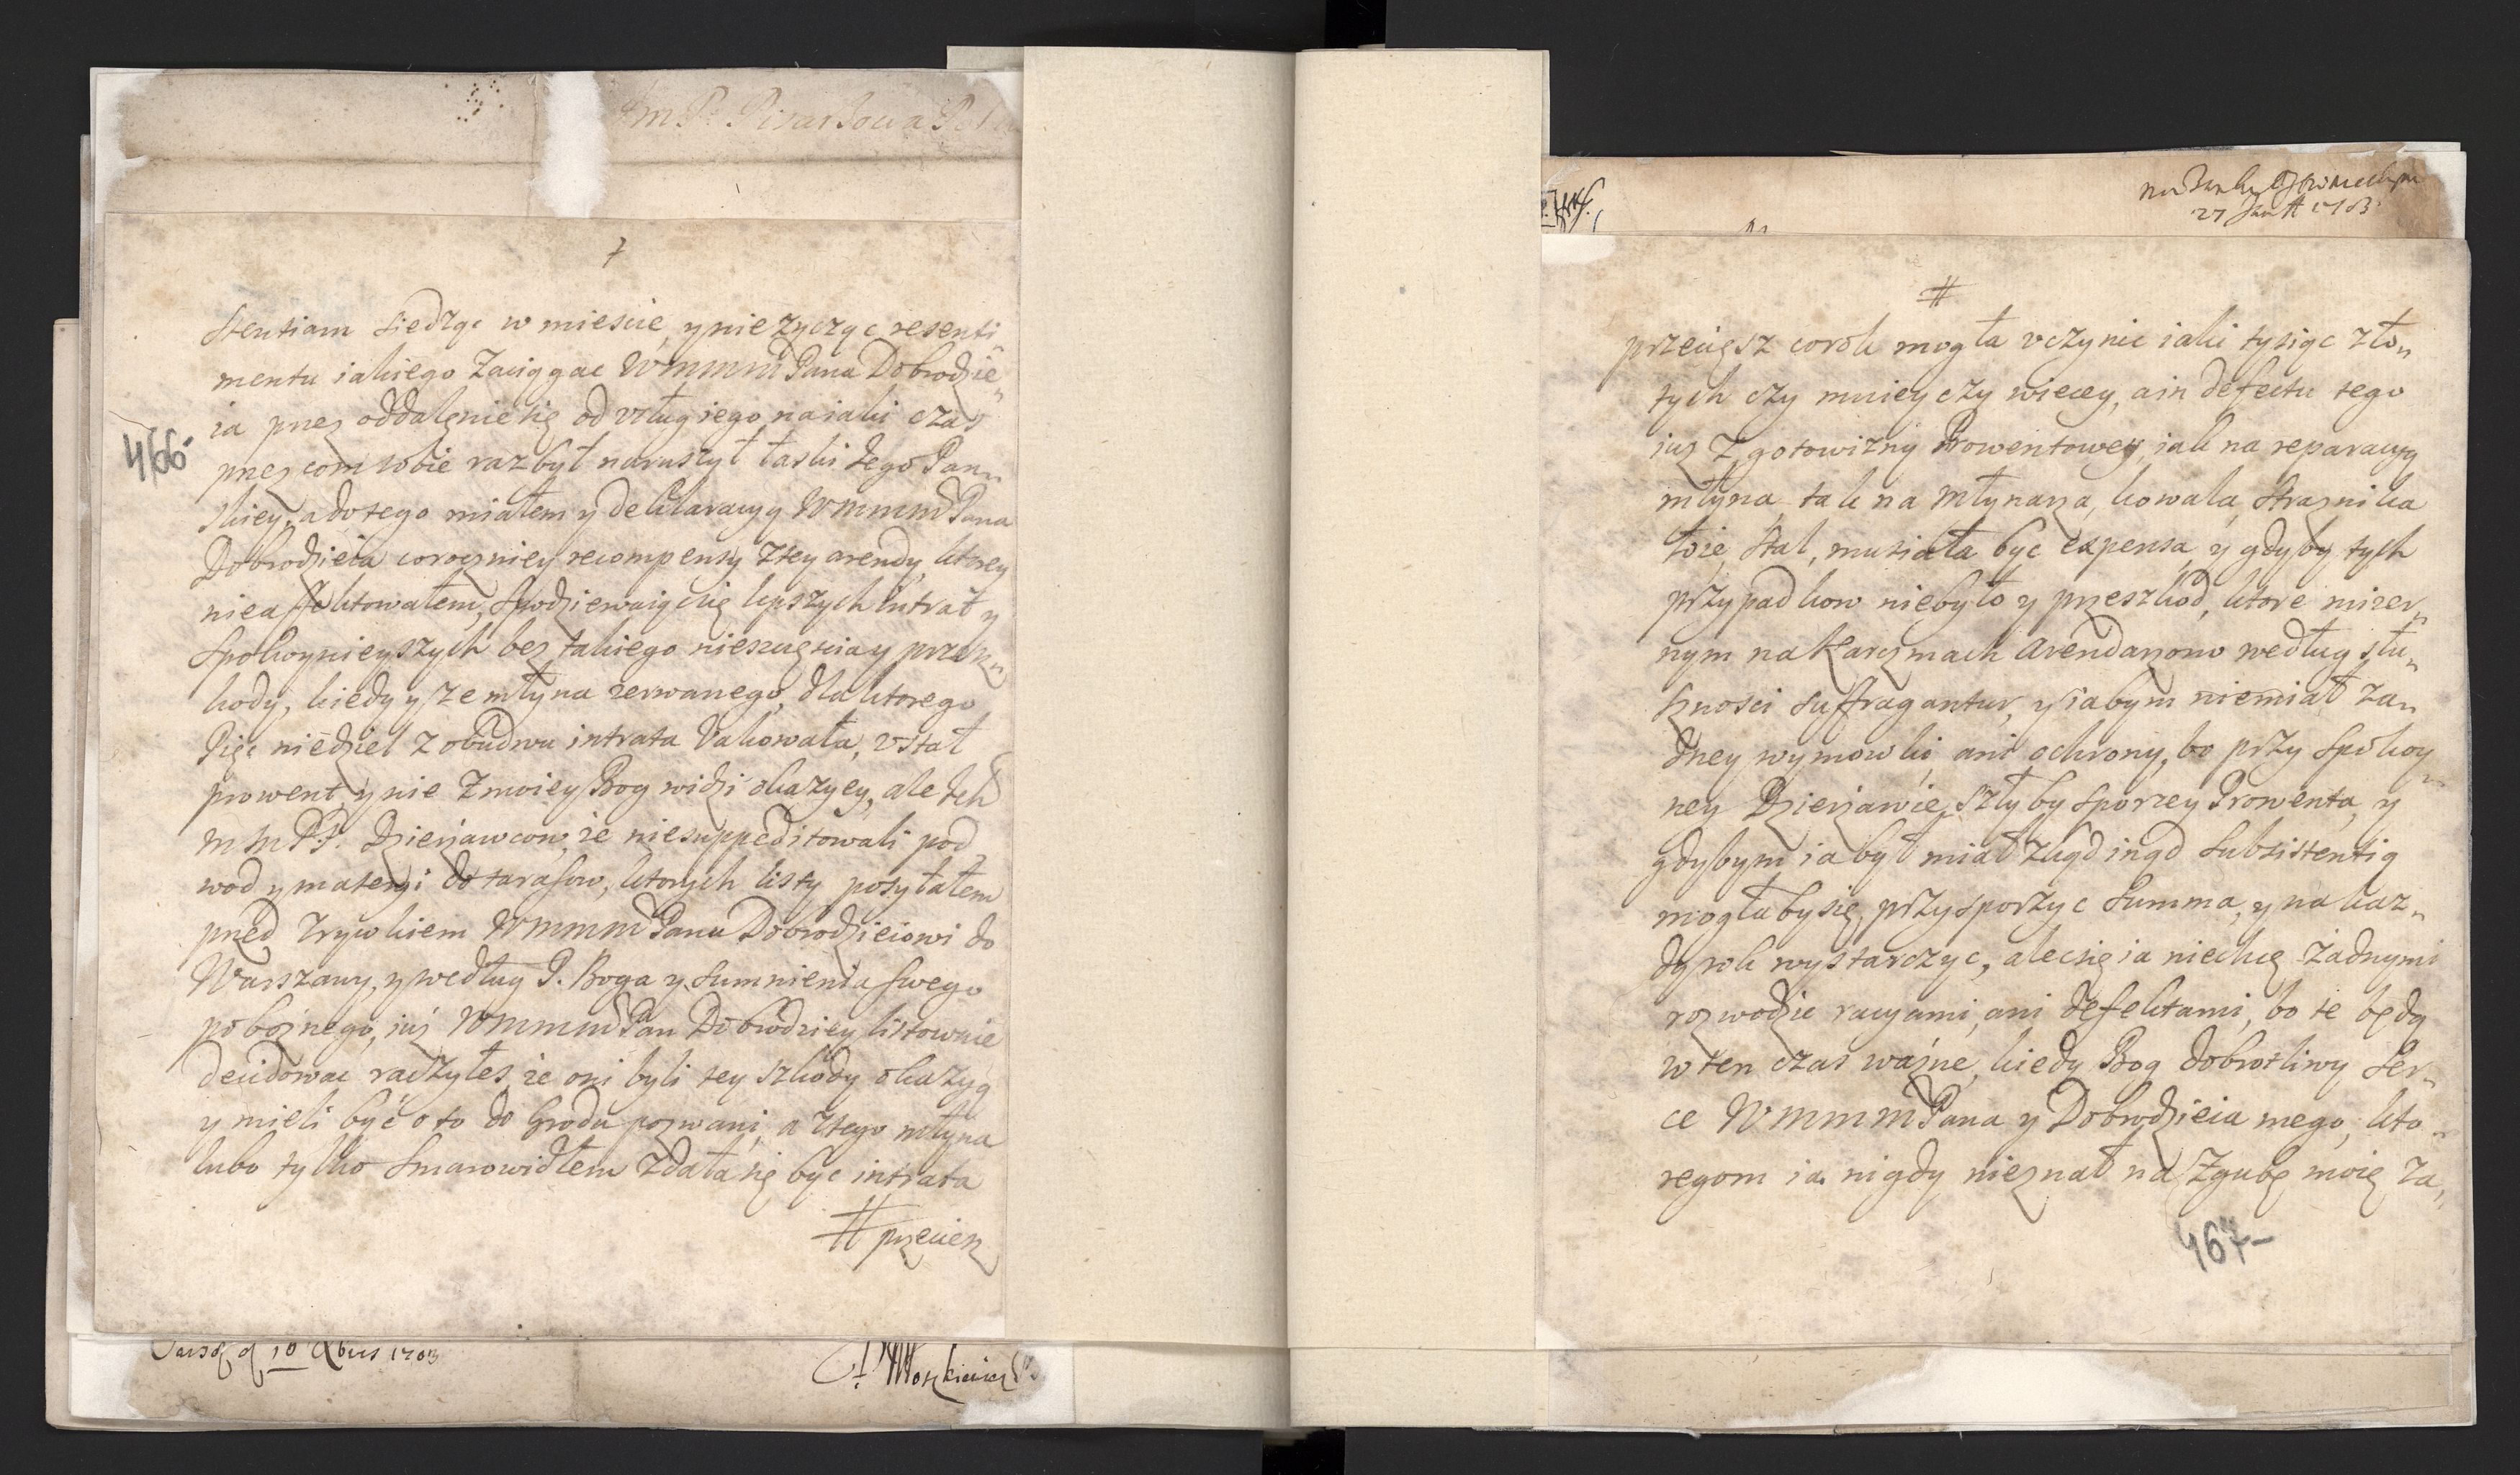 Im P. Pisarzowa Pol
7
stentiam siedząc w miescie, y nie zycząc resenti„
mentu iakiego zaciągac WMMMPana Dobrodzie„
ia przez oddalęnie się od vsług iego na iaki czas
przez com sobie raz był naruszył łaski Jego Pan„
skiey, a do tego miałem y deklaracyą WMMMPana
Dobrodzieia coroczniey recompensy z tey arendy, ktorey
nie affektowałem, spodziewaiąc się lepszych intrat y
spokoynieyszych bez takiego nieszczęscia y przesz„
kody, kiedy y ze młyna zerwanego, dla ktorego
Pięc niedziel z obudwu intrata vakowała, vstał
prowent, y nie z moiey Bog widzi okazyey, ale Ich
M M P.P. Dzierżawcow, że niesuppeditowali pod
wod y materyi do tarasow, ktorych listy posyłałem
przed Zrywkiem WMMMPanu Dobrodzieiowi do
Warszawy, y według P. Boga y sumnienia swego
poboznego, iuż WMMMPan Dobrodziey listownie
decidowac raczyłes, że oni byli tey szkody okazyą
y mieli być o to do Grodu pozwani, a z tego młyna
lubo tylko smarowidłem zdała się byc intrata
# przeciesz
466
d 10 Xbris 1703
27 1703
#
przeciesz corok mogła vczynic iaki tysiąc zło„
tych czy mniey czy wiecey, a in defectu tego
iuz z gotowizny Prowentowey, iak na reparacyą
młyna, tak na młynarza, kowala, straznika
łoie, stal, musiała byc expensa, y gdyby tych
przypadkow niebyło y przeszkod, ktore mizer„
nym na Karczmach Arendarzom według słu„
szności suffragantur, y iabym niemiał za„
dney wymowki ani ochrony, bo przy spokoy„
ney Dzierzawie szłyby sporzey Prowenta, y
gdybym ia był miał zkąd inąd subsistentią
mogłaby się przysporzyc summa, y na kaz„
dy rok wystarczyc, alec się ia niechcę żadnymi
rozwodzic racyami, ani defektami, bo te będą
w ten czas ważne, kiedy Bog dobrotliwy ser„
ce WMMMPana y Dobrodzieia mego, kto„
regom ia nigdy nieznał na zgubę moię za„
467